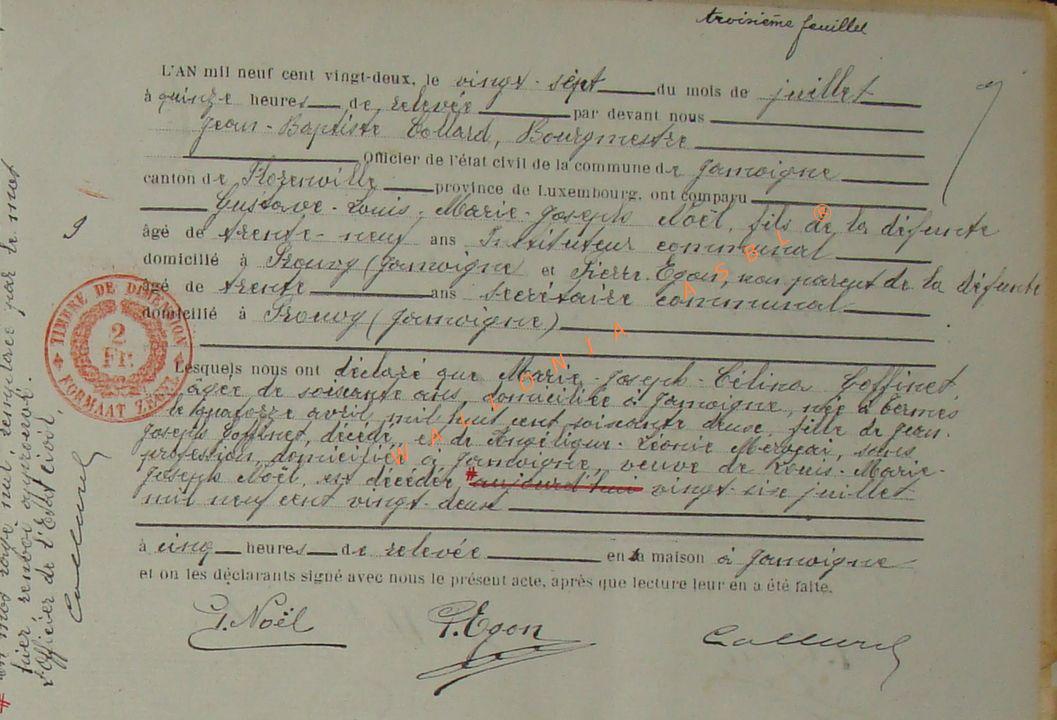 troisième feuillet
L'AN mil neuf cent vingt-deux, le vingt-sept du mois de juillet
à quinze heures de relevée par devant nous
Jean-Baptiste Collard, Bourgmestre
Officier de l'état civil de la commune de Jamoigne
canton de Florenville province de Luxembourg, ont comparu
Gustave-Louis-Marie-Joseph Noël, fils de la défunte
âgé de trente-neuf ans Instituteur communal
domicilié à Prouvy (Jamoigne et Pierre Egon, non parent de la défunte
âgé de trente ans secrétaire communal
domicilié à Prouvy (Jamoigne)
Lesquels nous ont déclaré que Marie-Joseph-Célina Goffinet,
âgée de soixante ans, domiciliée à Jamoigne, née à
le quatorze avril mil huit cent soixante deux, fille de Jean-
Joseph Goffinet, décédé, et de Angélique-Léonie sans
profession, domiciliée à Jamoigne, veuve de Louis-Marie-
Joseph Noël, est décédée, # aujourd'hui vingt-six juillet
mil neuf cent vingt-deux
à cinq heures de relevée en sa maison à Jamoigne
et on les déclarants signé avec nous le présent acte, après que lecture leur en a été faite.
G. Noël P. Egon Collard
TIMBRE DE DIMENSION
2
Fr.
FORMAAT ZEGEL
9
# un mot rayé nul, remplacé par le mot
hier renvoi approuvé.
L'officier de l'Etat civil,
Collard
WALLONIA ASBL ®